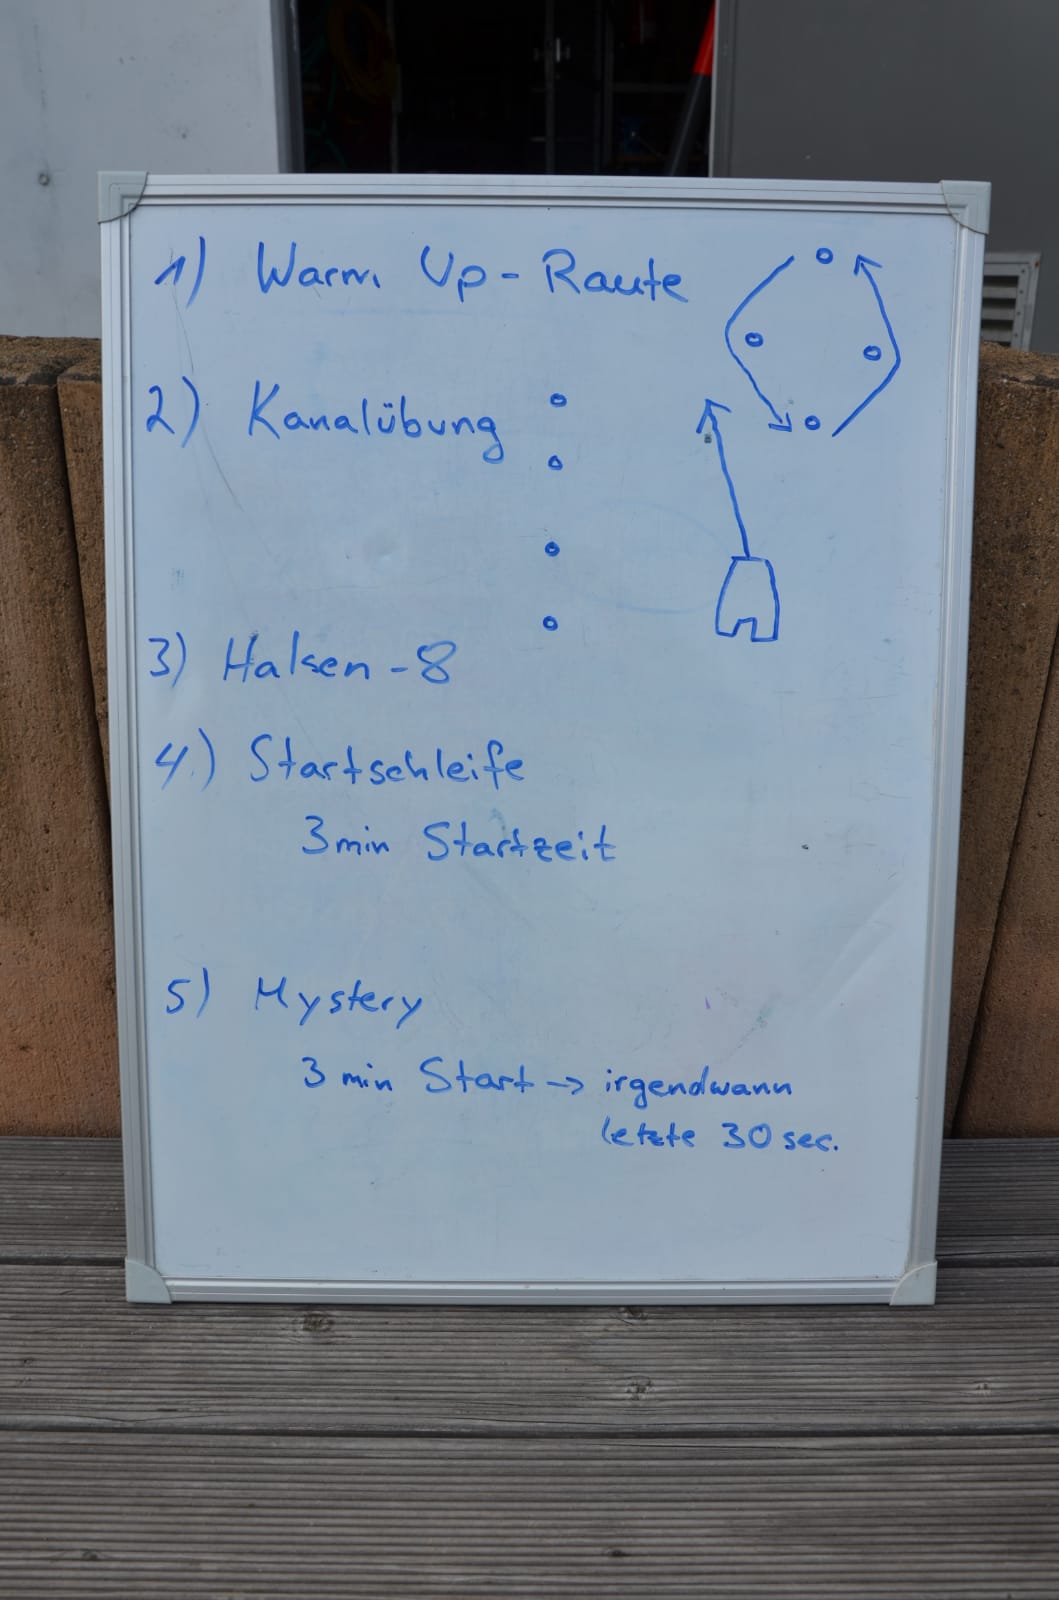 1) Warm Up - Raute
2) Kanalübung
3) Halsen - 8
4.) Startschleife
3 min Startzeit
5) Mystery
3 min Start → irgendwann
letzte 30 sec.